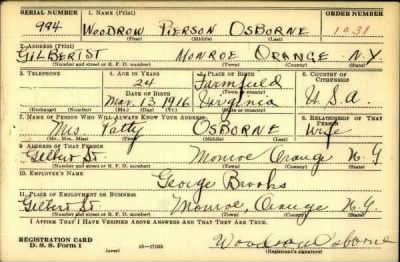 SERIAL NUMBER 1. NAME (Print) ORDER NUMBER
994 WOODROW PIERSON OSBORNE 1031
(First) (Middle) (Last)
2. ADDRESS (Print)
GILBERT ST MONROE ORANGE N.Y.
(Number and street or R. F. D. number) (Town) (County) (State)
3. TELEPHONE 4. AGE IN YEARS 5. PLACE OF BIRTH 6. COUNTRY OF CITIZENSHIP
24 Farmfield
DATE OF BIRTH (Town or county)
Mar. 13 1916 Virginia U.S.A.
(Exchange) (Number) (Mo.) (Day) (Yr.) (State or country)
7. NAME OF PERSON WHO WILL ALWAYS KNOW YOUR ADDRESS 8. RELATIONSHIP OF THAT PERSON
Mrs. Patty OSBORNE Wife
(Mr., Mrs., Miss) (First) (Middle) (Last)
9. ADDRESS OF THAT PERSON
Gilbert St. Monroe Orange N.Y.
(Number and street or R. F. D. number) (Town) (County) (State)
10. EMPLOYER'S NAME
George Brooks
11. PLACE OF EMPLOYMENT OR BUSINESS
Gilbert St. Monroe, Orange N.Y.
(Number and street or R. F. D. number) (Town) (County) (State)
I AFFIRM THAT I HAVE VERIFIED ABOVE ANSWERS AND THAT THEY ARE TRUE.
REGISTRATION CARD
D. S. S. Form 1 (over) 16—17105 Woodrow Osborne
(Registrant's signature)